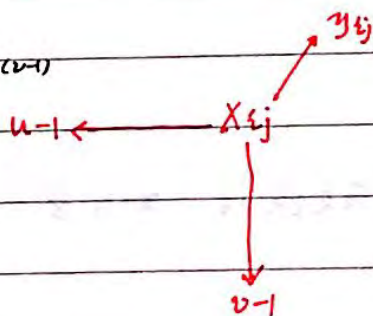 y_{ij}
(v-1)
u-1 ← X_{ij}
v-1